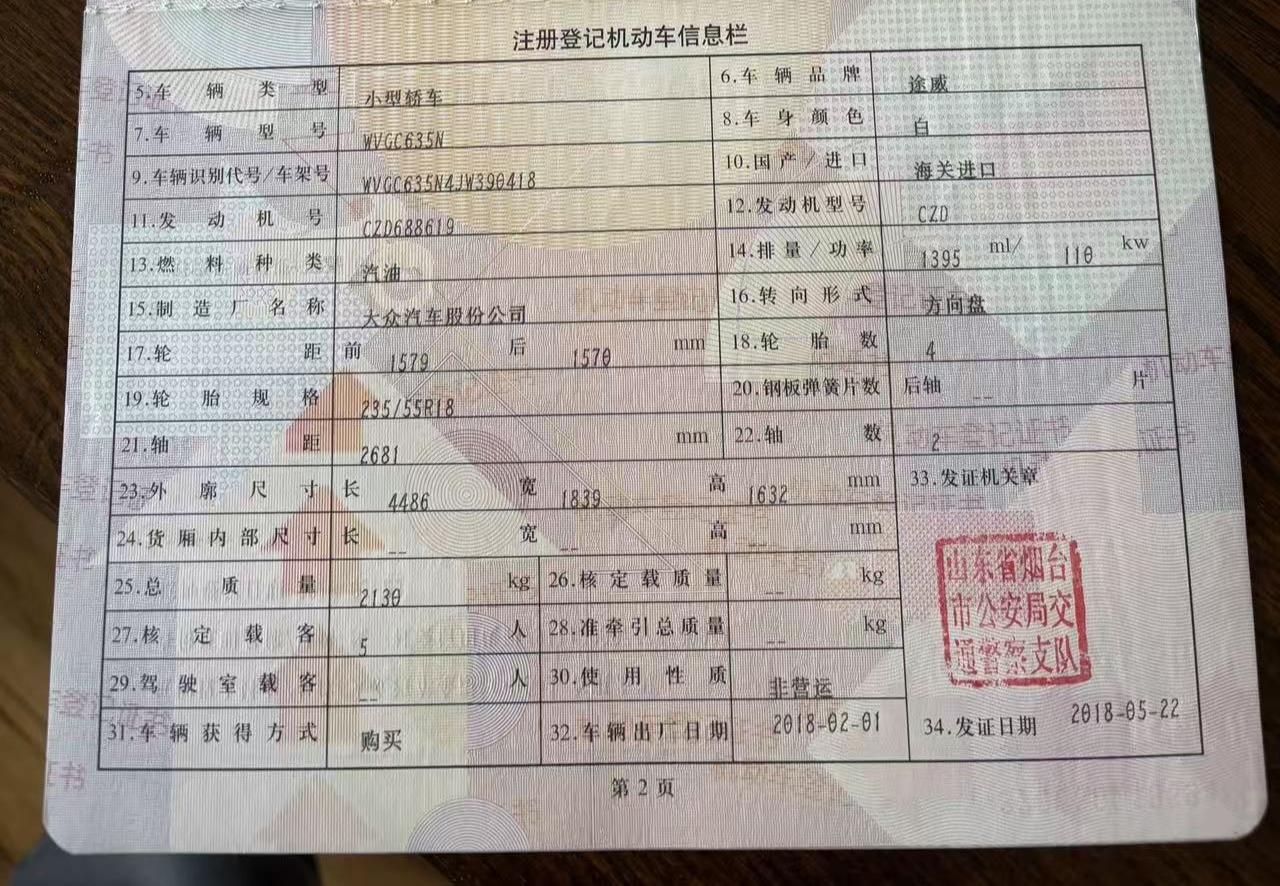 注册登记机动车信息栏
5.车辆类型 小型轿车 6.车辆品牌 途威
7.车辆型号 WVGC635N 8.车身颜色 白
9.车辆识别代号/车架号 WVGC635N4JW390418 10.国产/进口 海关进口
11.发动机号 CZD688619 12.发动机型号 CZD
13.燃料种类 汽油 14.排量/功率 1395 ml/ 110 kw
15.制造厂名称 大众汽车股份公司 16.转向形式 方向盘
17.轮距 前 1579 后 1570 mm 18.轮胎数 4
19.轮胎规格 235/55R18 20.钢板弹簧片数 后轴 -- 片
21.轴距 2681 mm 22.轴数 2
23.外廓尺寸 长 4486 宽 1839 高 1632 mm 33.发证机关章
24.货厢内部尺寸 长 -- 宽 -- 高 -- mm
25.总质量 2130 kg 26.核定载质量 -- kg
山东省烟台
市公安局交
通警察支队
27.核定载客 5 人 28.准牵引总质量 -- kg
29.驾驶室载客 -- 人 30.使用性质 非营运
31.车辆获得方式 购买 32.车辆出厂日期 2018-02-01 34.发证日期 2018-05-22
第2页